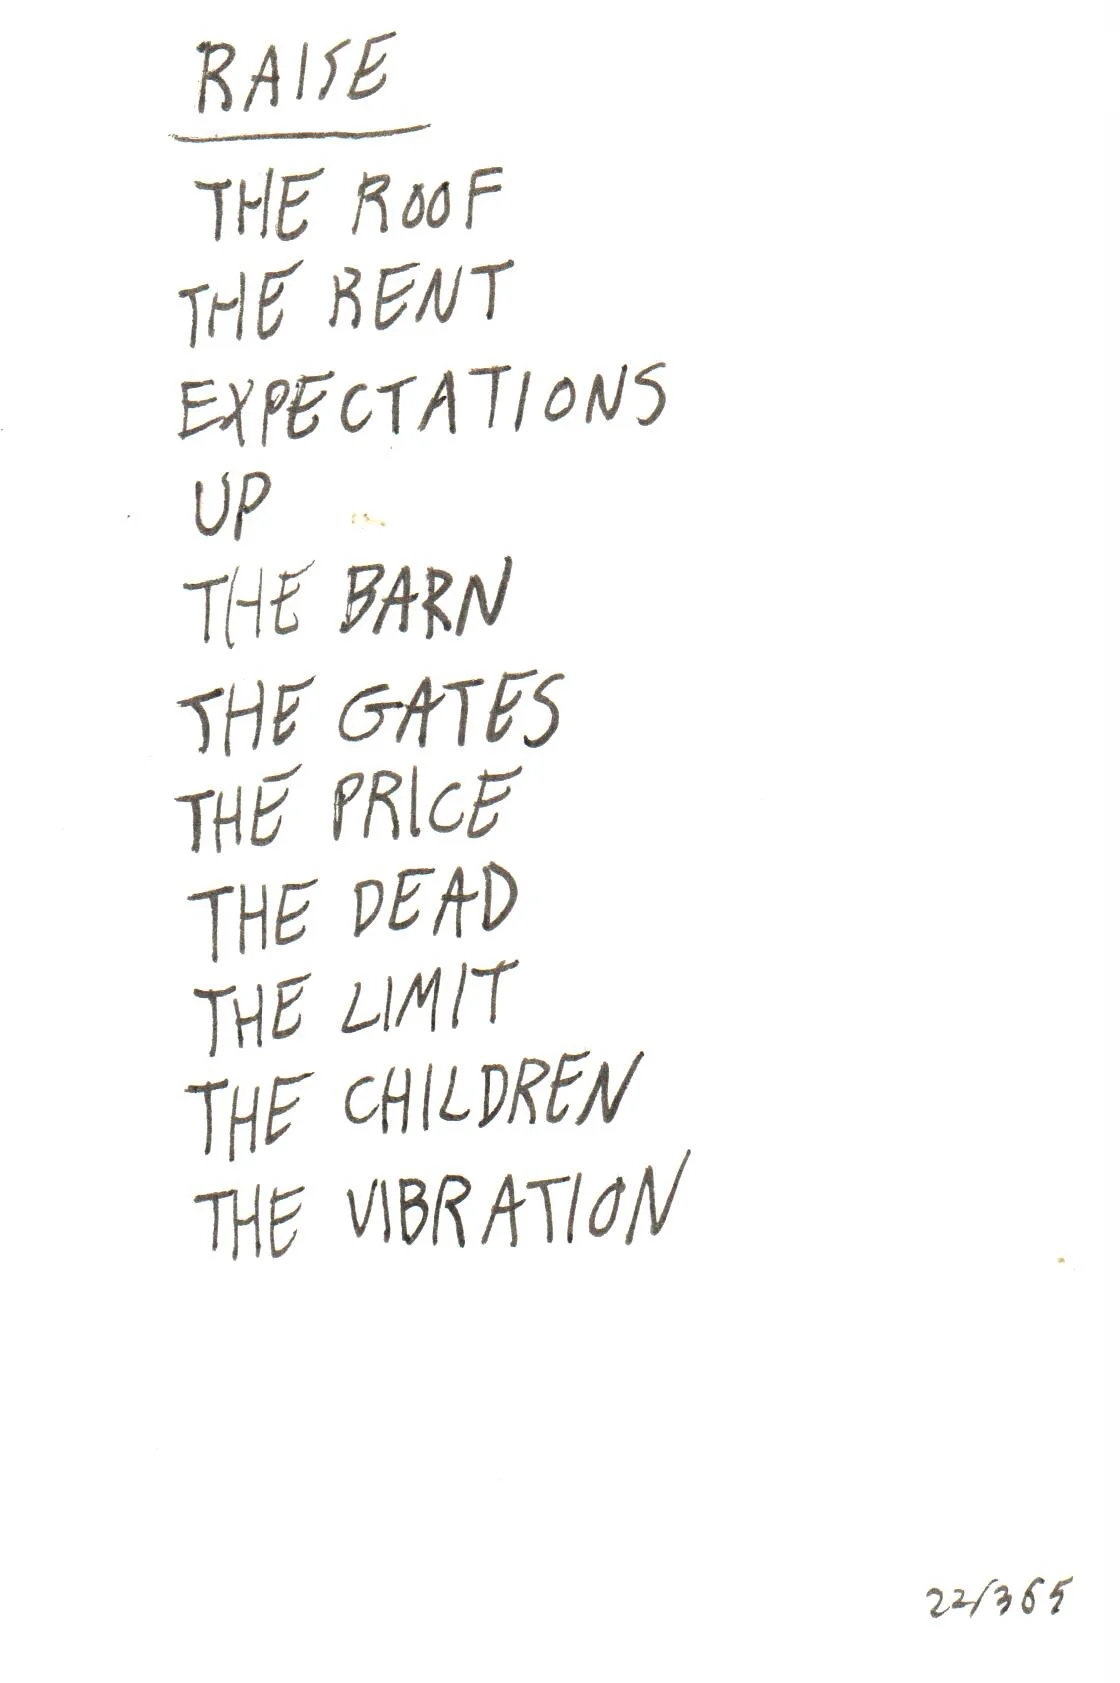 RAISE
THE ROOF
THE RENT
EXPECTATIONS
UP
THE BARN
THE GATES
THE PRICE
THE DEAD
THE LIMIT
THE CHILDREN
THE VIBRATION
22/365